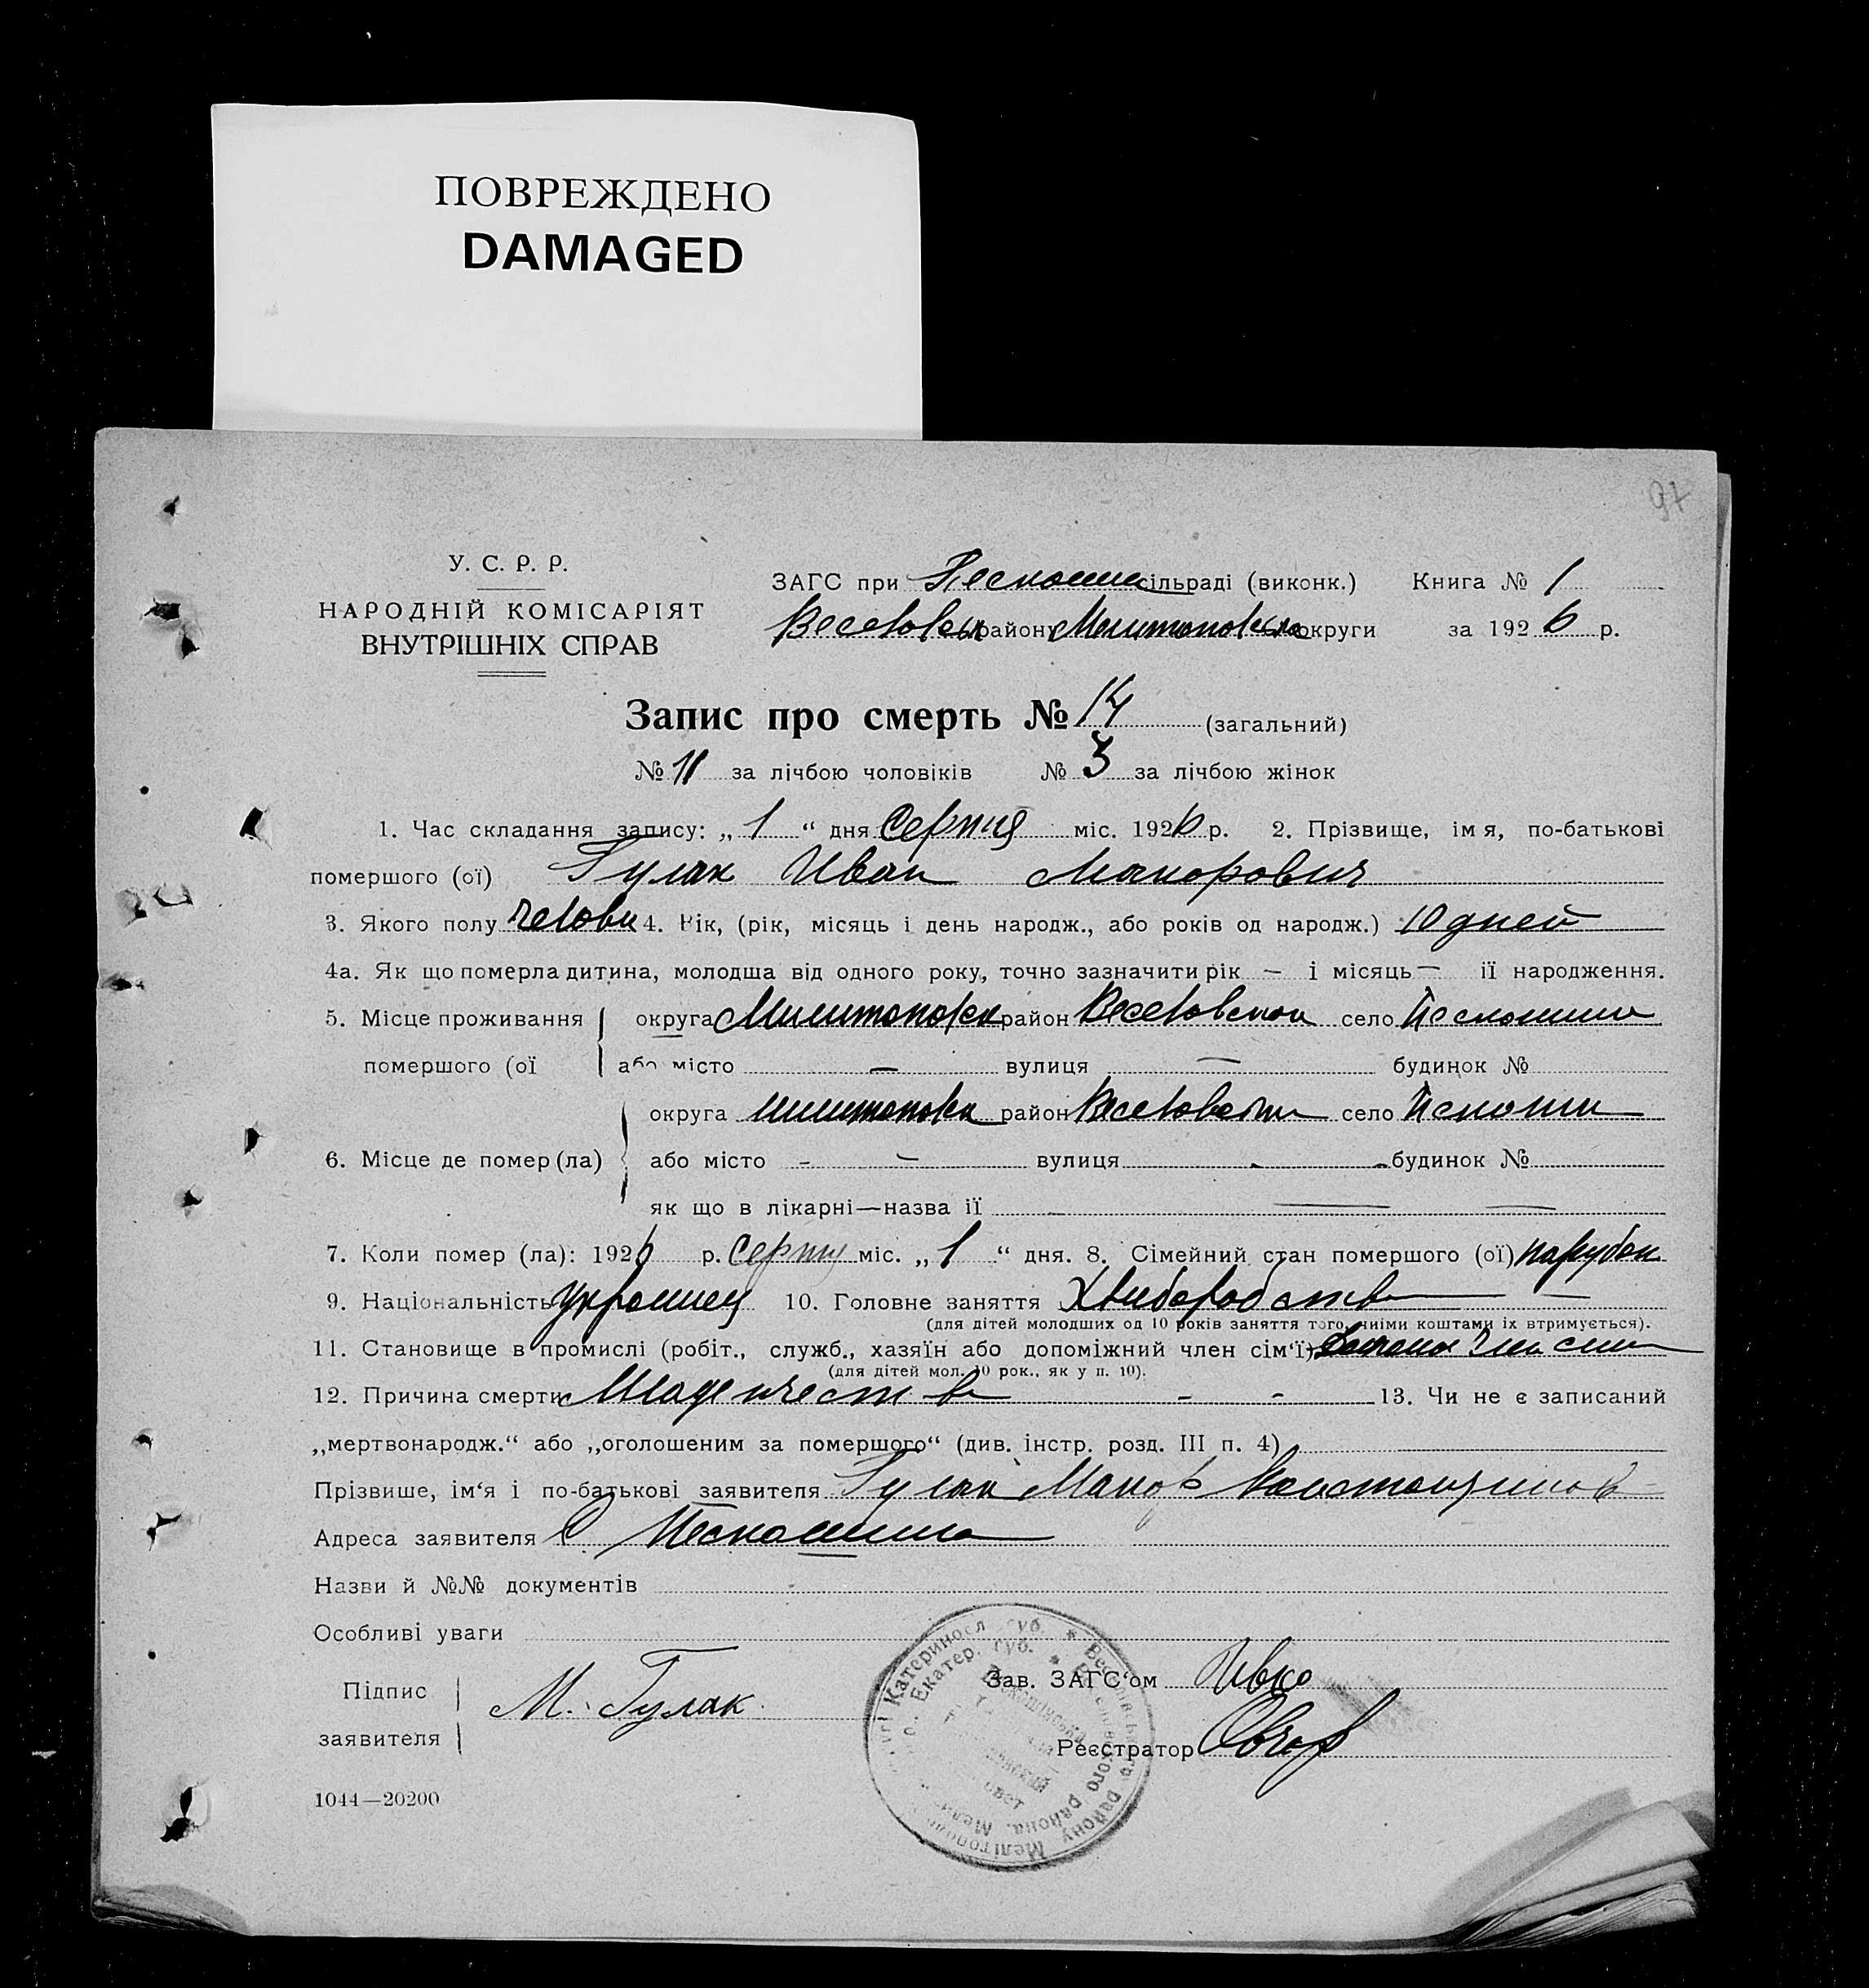 ПОВРЕЖДЕНО
DAMAGED
97
У. С. Р. Р.
НАРОДНІЙ КОМІСАРІЯТ
ВНУТРІШНІХ СПРАВ
ЗАГС при сільраді (виконк.) Книга № 1
району округи за 1926 р.
Запис про смерть № 14 (загальний)
№ 11 за лічбою чоловіків № 3 за лічбою жінок
1. Час складання запису: „ 1 “ дня Серпня міс. 1926 р. 2. Прізвище, імя, по-батькові
помершого (ої) Гулак Иван Макорович
3. Якого полу 4. Вік, (рік, місяць і день народж., або років од народж.) 10 дней
4а. Як що померла дитина, молодша від одного року, точно зазначити рік — і місяць — її народження.
5. Місце проживання округа район село
помершого (ої або місто — вулиця — будинок №
округа район село
6. Місце де помер (ла) або місто - — вулиця - - будинок №
як що в лікарні—назва її — —
7. Коли помер (ла): 1926 р. міс. „ 1 “ дня. 8. Сімейний стан помершого (ої) парубок
9. Національність Українец 10. Головне заняття Хлиборобство —
(для дітей молодших од 10 років заняття того, чиїми коштами їх втримується).
11. Становище в промислі (робіт., служб., хазяїн або допоміжний член сім'ї)
(для дітей мол. 10 рок., як у п. 10).
12. Причина смерти Младенчество - - 13. Чи не є записаний
„мертвонародж.“ або „оголошеним за помершого“ (див. інстр. розд. III п. 4)
Прізвише, ім'я і по-батькові заявителя Гулак Макор Константинов
Адреса заявителя С.
Назви й №№ документів
Особливі уваги
Підпис
заявителя М. Гулак
Зав. ЗАГС'ом Ивко
Реєстратор
1044—20200